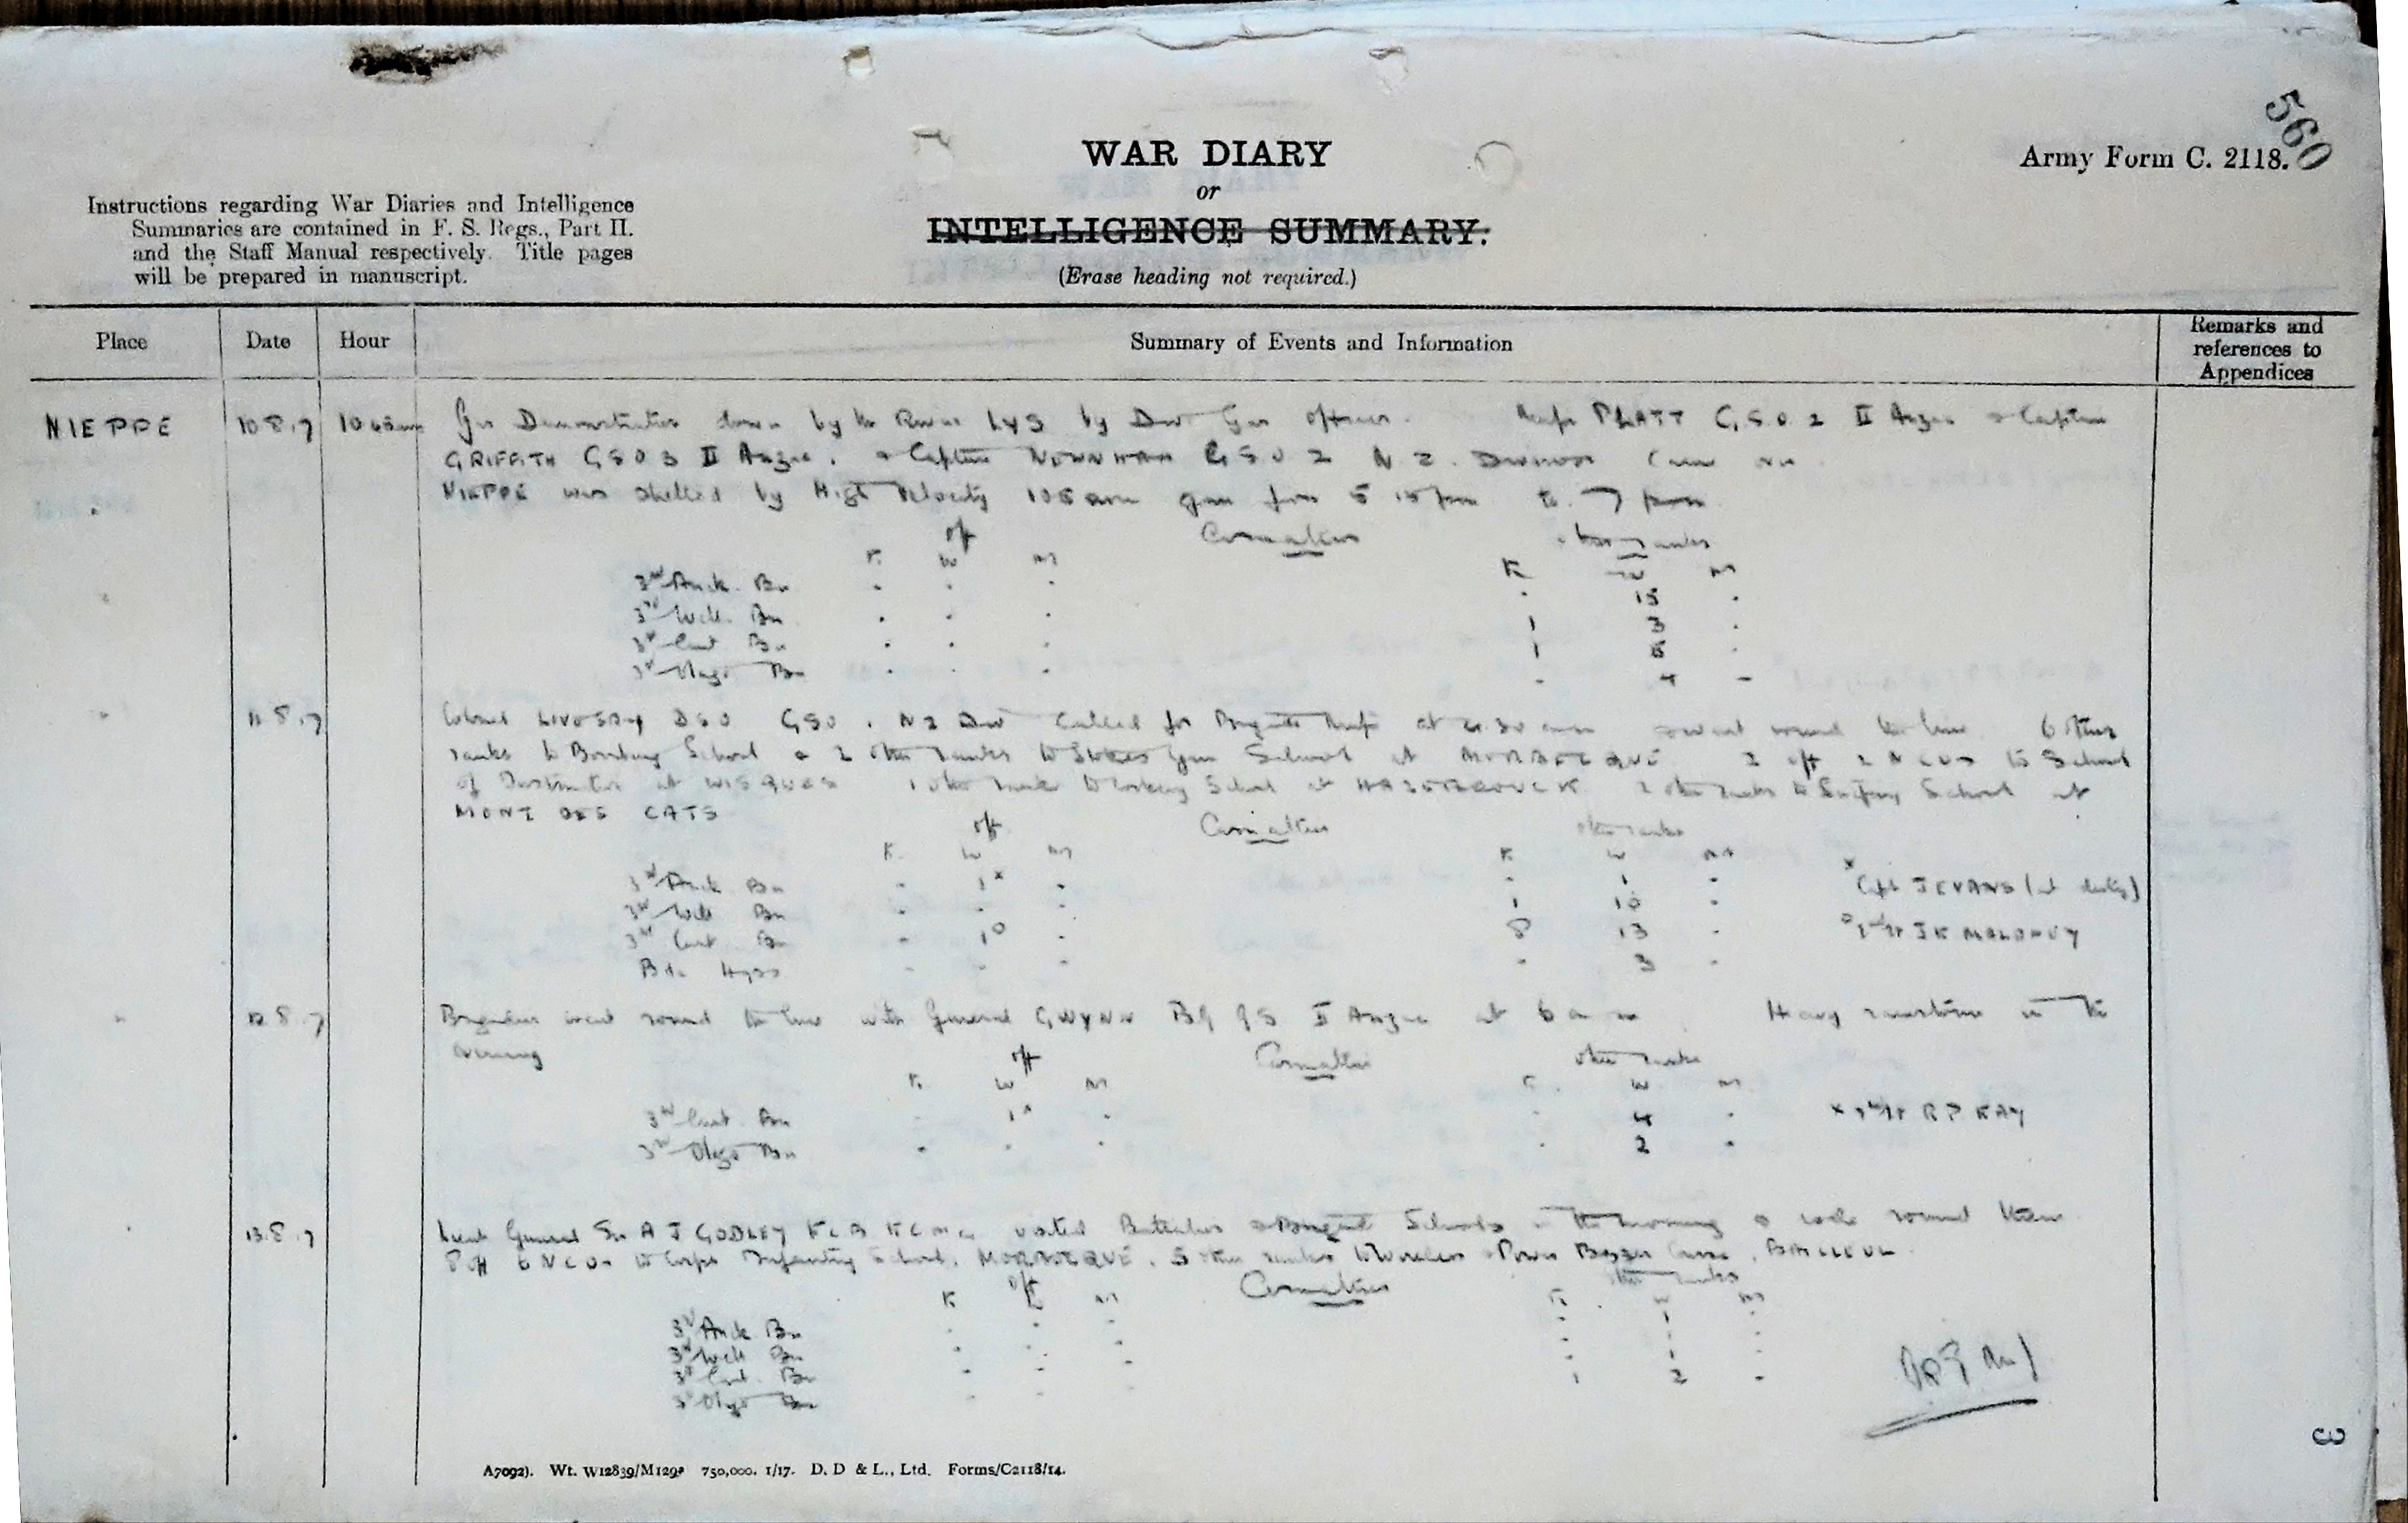 560
WAR DIARY
Army Form C. 2118.
or
INTELLIGENCE SUMMARY.
(Erase heading not required.)
Instructions regarding War Diaries and Intelligence
Summaries are contained in F. S. Regs., Part II.
and the Staff Manual respectively. Title pages
will be prepared in manuscript.
Place Date Hour Summary of Events and Information Remarks and references to Appendices
NIEPPE 10 8.17 Gas Demonstration down by the River LYS by Div Gas officer. PLATT G.S.O. 2 II Anzac & Captain
GRIFFITH G S O 3 II Anzac. & Captain NEWNHAM G S O 2 N Z. DIVISION
NIEPPE was shelled by High Velocity gun from 5 15 pm to 7 pm
off Casualties other ranks
K W M K W M
3rd Auck. Bn - - - - 15 -
3rd Well. Bn - - - 1 3 -
3rd Cant Bn - - - 1 5 -
3rd Otago Bn - - - - 4 -
11 8.17 Colonel LIVESEY DSO GSO 1 NZ Div called for Brigade Major at 4.30 am & went round the line 6 other
ranks to Bombing School & 2 other ranks to Stokes Gun School at MORBECQUE 2 off 2 NCOs to School
of Instruction at WISQUES 1 other rank to Cookery School at HAZEBROUCK 2 other ranks to Sniping School at
MONT DES CATS
off Casualties other ranks
K W M K W M
3rd Auck Bn - 1x - - 1 - x Capt J EVANS (at duty)
3rd Well Bn - - - 1 10 -
3rd Cant Bn - 1o - 8 13 - o 2nd Lt J K MALONEY
Bde Hqrs - - - - 3 -
12 8 17 Brigadier went round the line with General GWYNN BGGS II Anzac at 6 a m Heavy rainstorm in the
evening
off Casualties other ranks
K W M K W M
3rd Cant Bn - 1x - - 4 - x 2nd Lt R P KAY
3rd Otago Bn - - - - 2 -
13.8.17 Lieut General Sir A J GODLEY KCB KCMG visited Battalion & Brigade Schools in the morning & rode round them
8 off 6 NCOs to Corps Infantry School, MORBECQUE. 5 other ranks to Wireless & Power Buzzer Course, BAILLEUL
off Casualties other ranks
K W M K W M
3rd Auck Bn
3rd Well Bn
3rd Cant Bn
3rd Otago Bn
A7092). Wt. W12839/M1292 750,000. 1/17. D. D & L., Ltd. Forms/C2118/14.
3